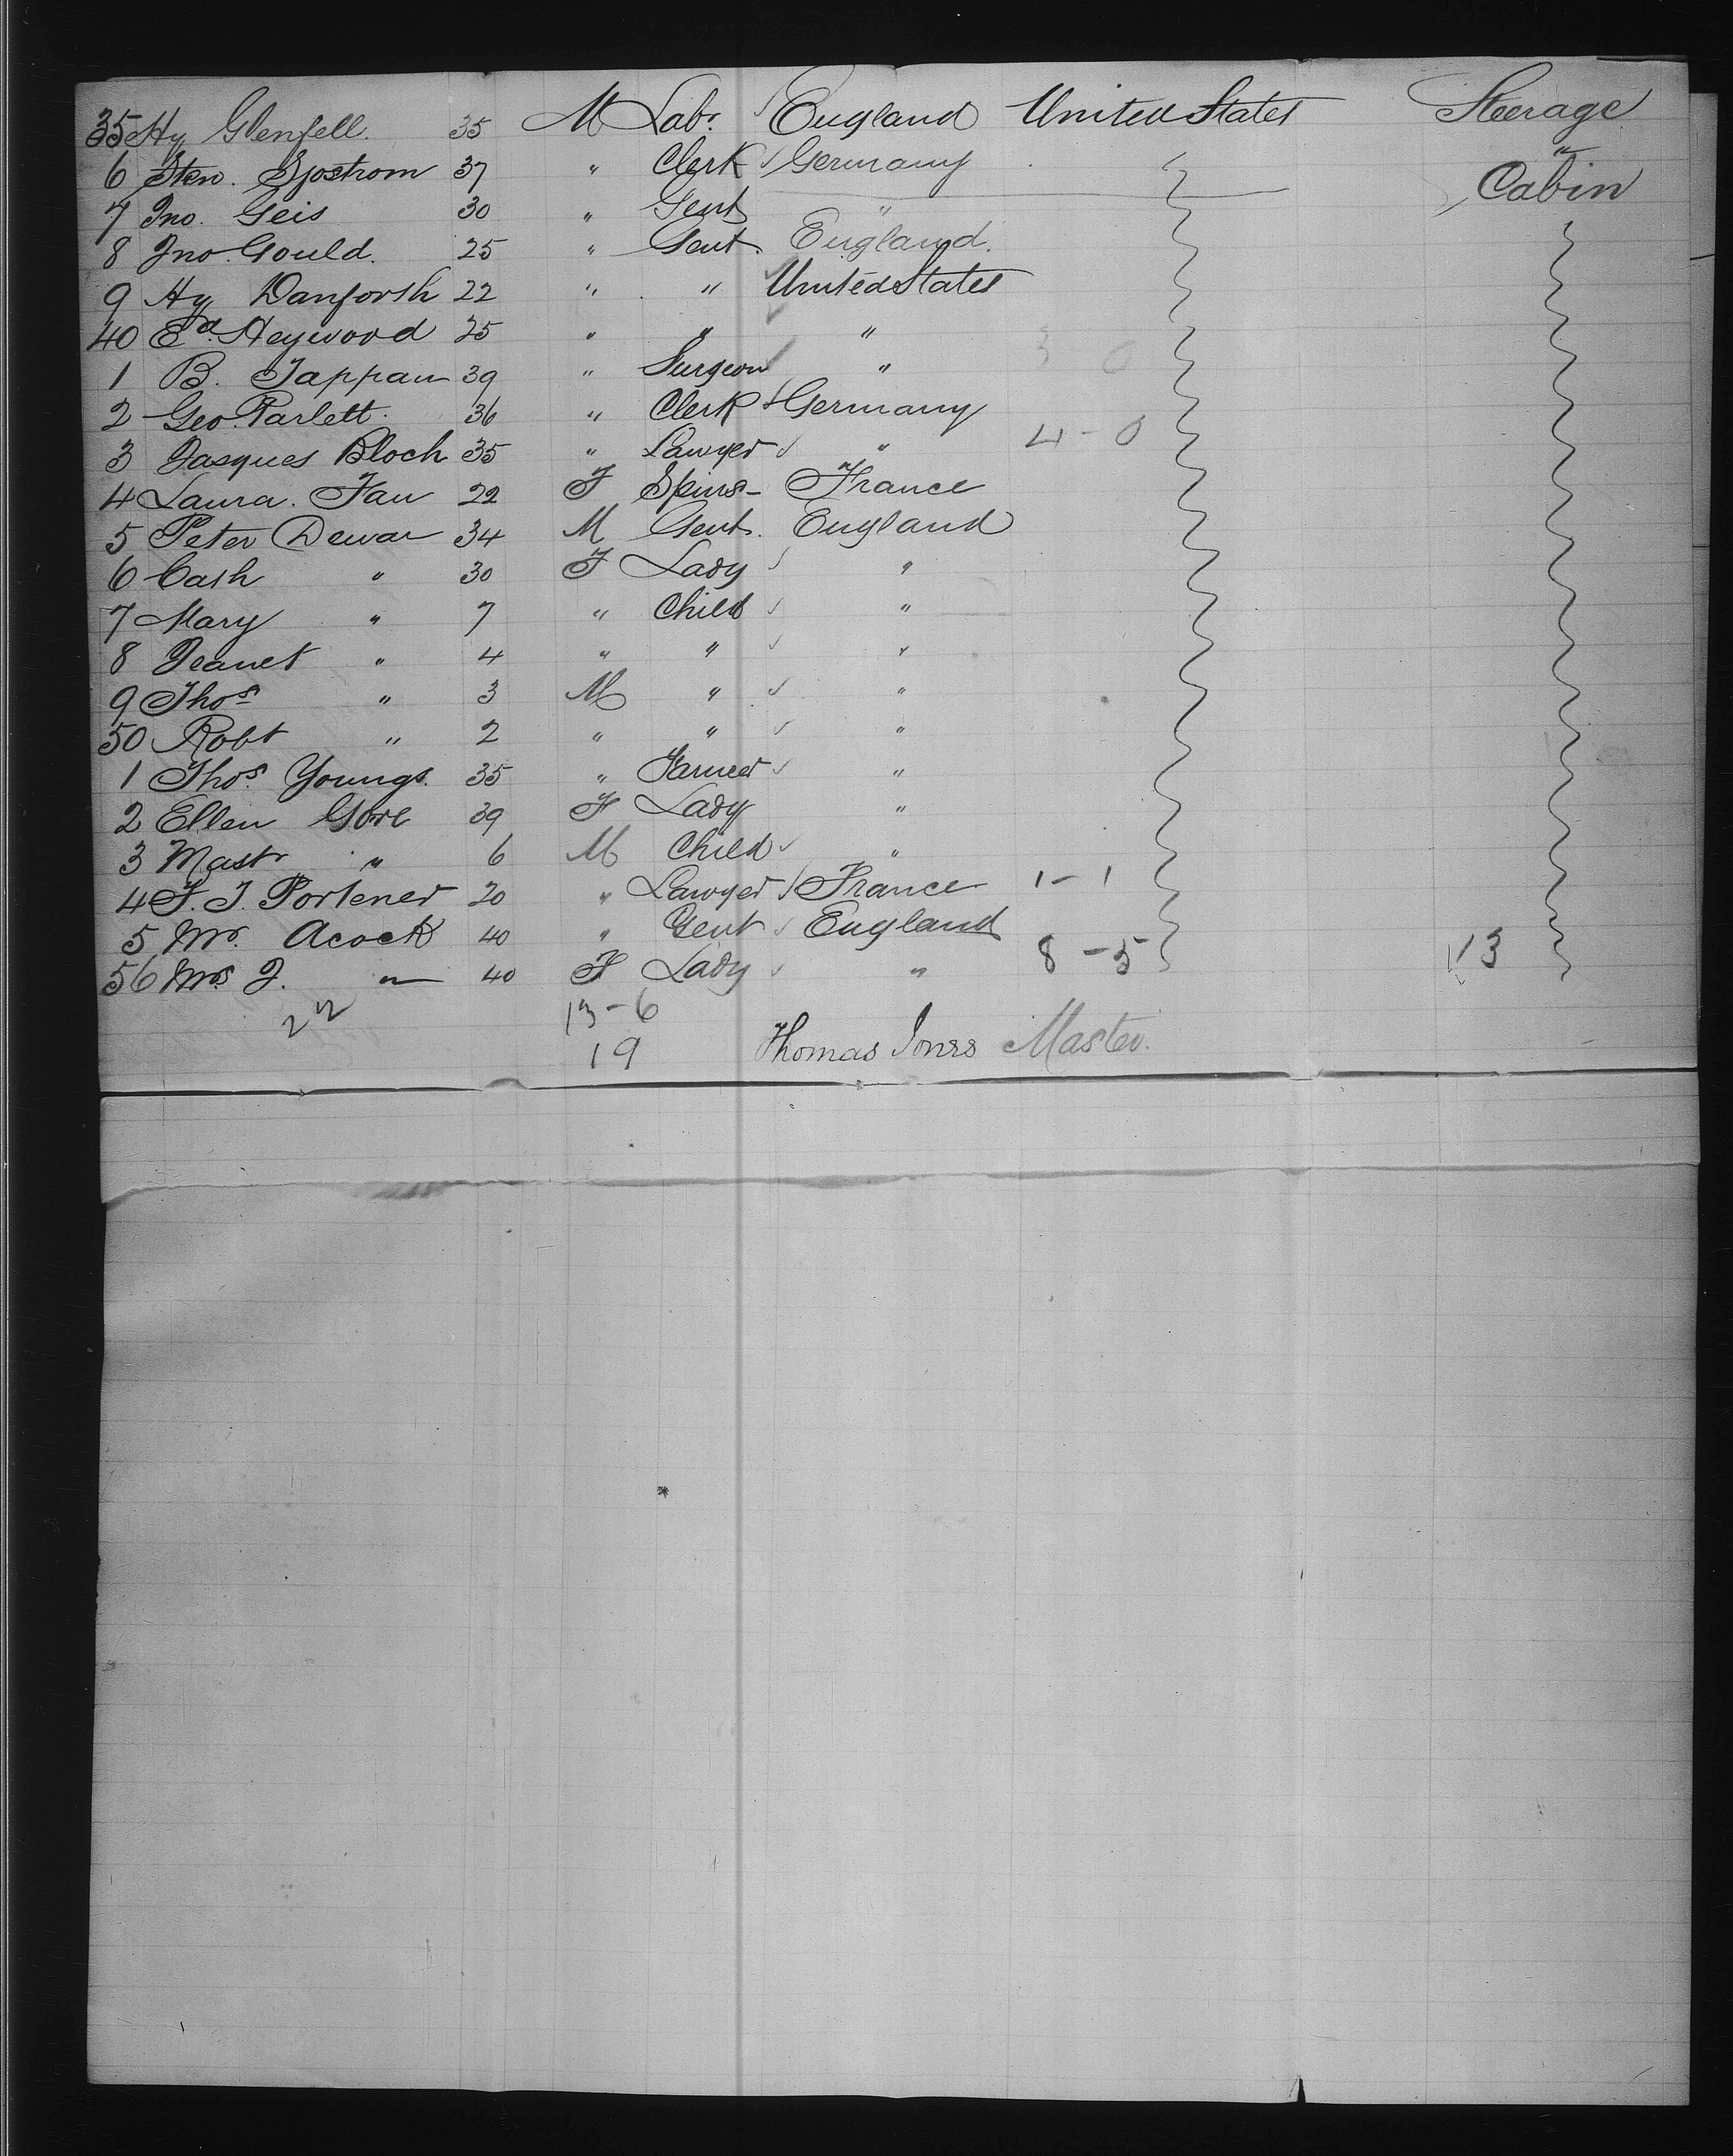 35 Hy Glenfell. 35 M Labr. England United States Steerage
6 Sten. Sjostrom 37 " Clerk Germany "
7 Jno. Geis 30 " Gent " Cabin
8 Jno. Gould. 25 " Gent. England.
9 Hy Danforth 22 " " United States
40 Ed. Heywood 25 " " "
1 B. Tappan 39 " Surgeon " 3 0
2 Geo. Parlett. 36 " Clerk Germany
3 Jasques Bloch 35 " Lawyer " 4-0
4 Laura. Fau 22 F Spins- France
5 Peter Dewar 34 M Gent. England
6 Cash " 30 F Lady "
7 Mary " 7 " Child "
8 Jeanet " 4 " " "
9 Thos " 3 M " "
50 Robt " 2 " " "
1 Thos. Youngs. 35 " Farmer "
2 Ellen Gore 39 F Lady "
3 Mastr " 6 M Child "
4 F. J. Portener 20 " Lawyer France 1-1
5 Mr. Acock 40 " Gent England
56 Mrs. J. " 40 F Lady " 8-5 13
22 13-6
19 Thomas Jones Master.